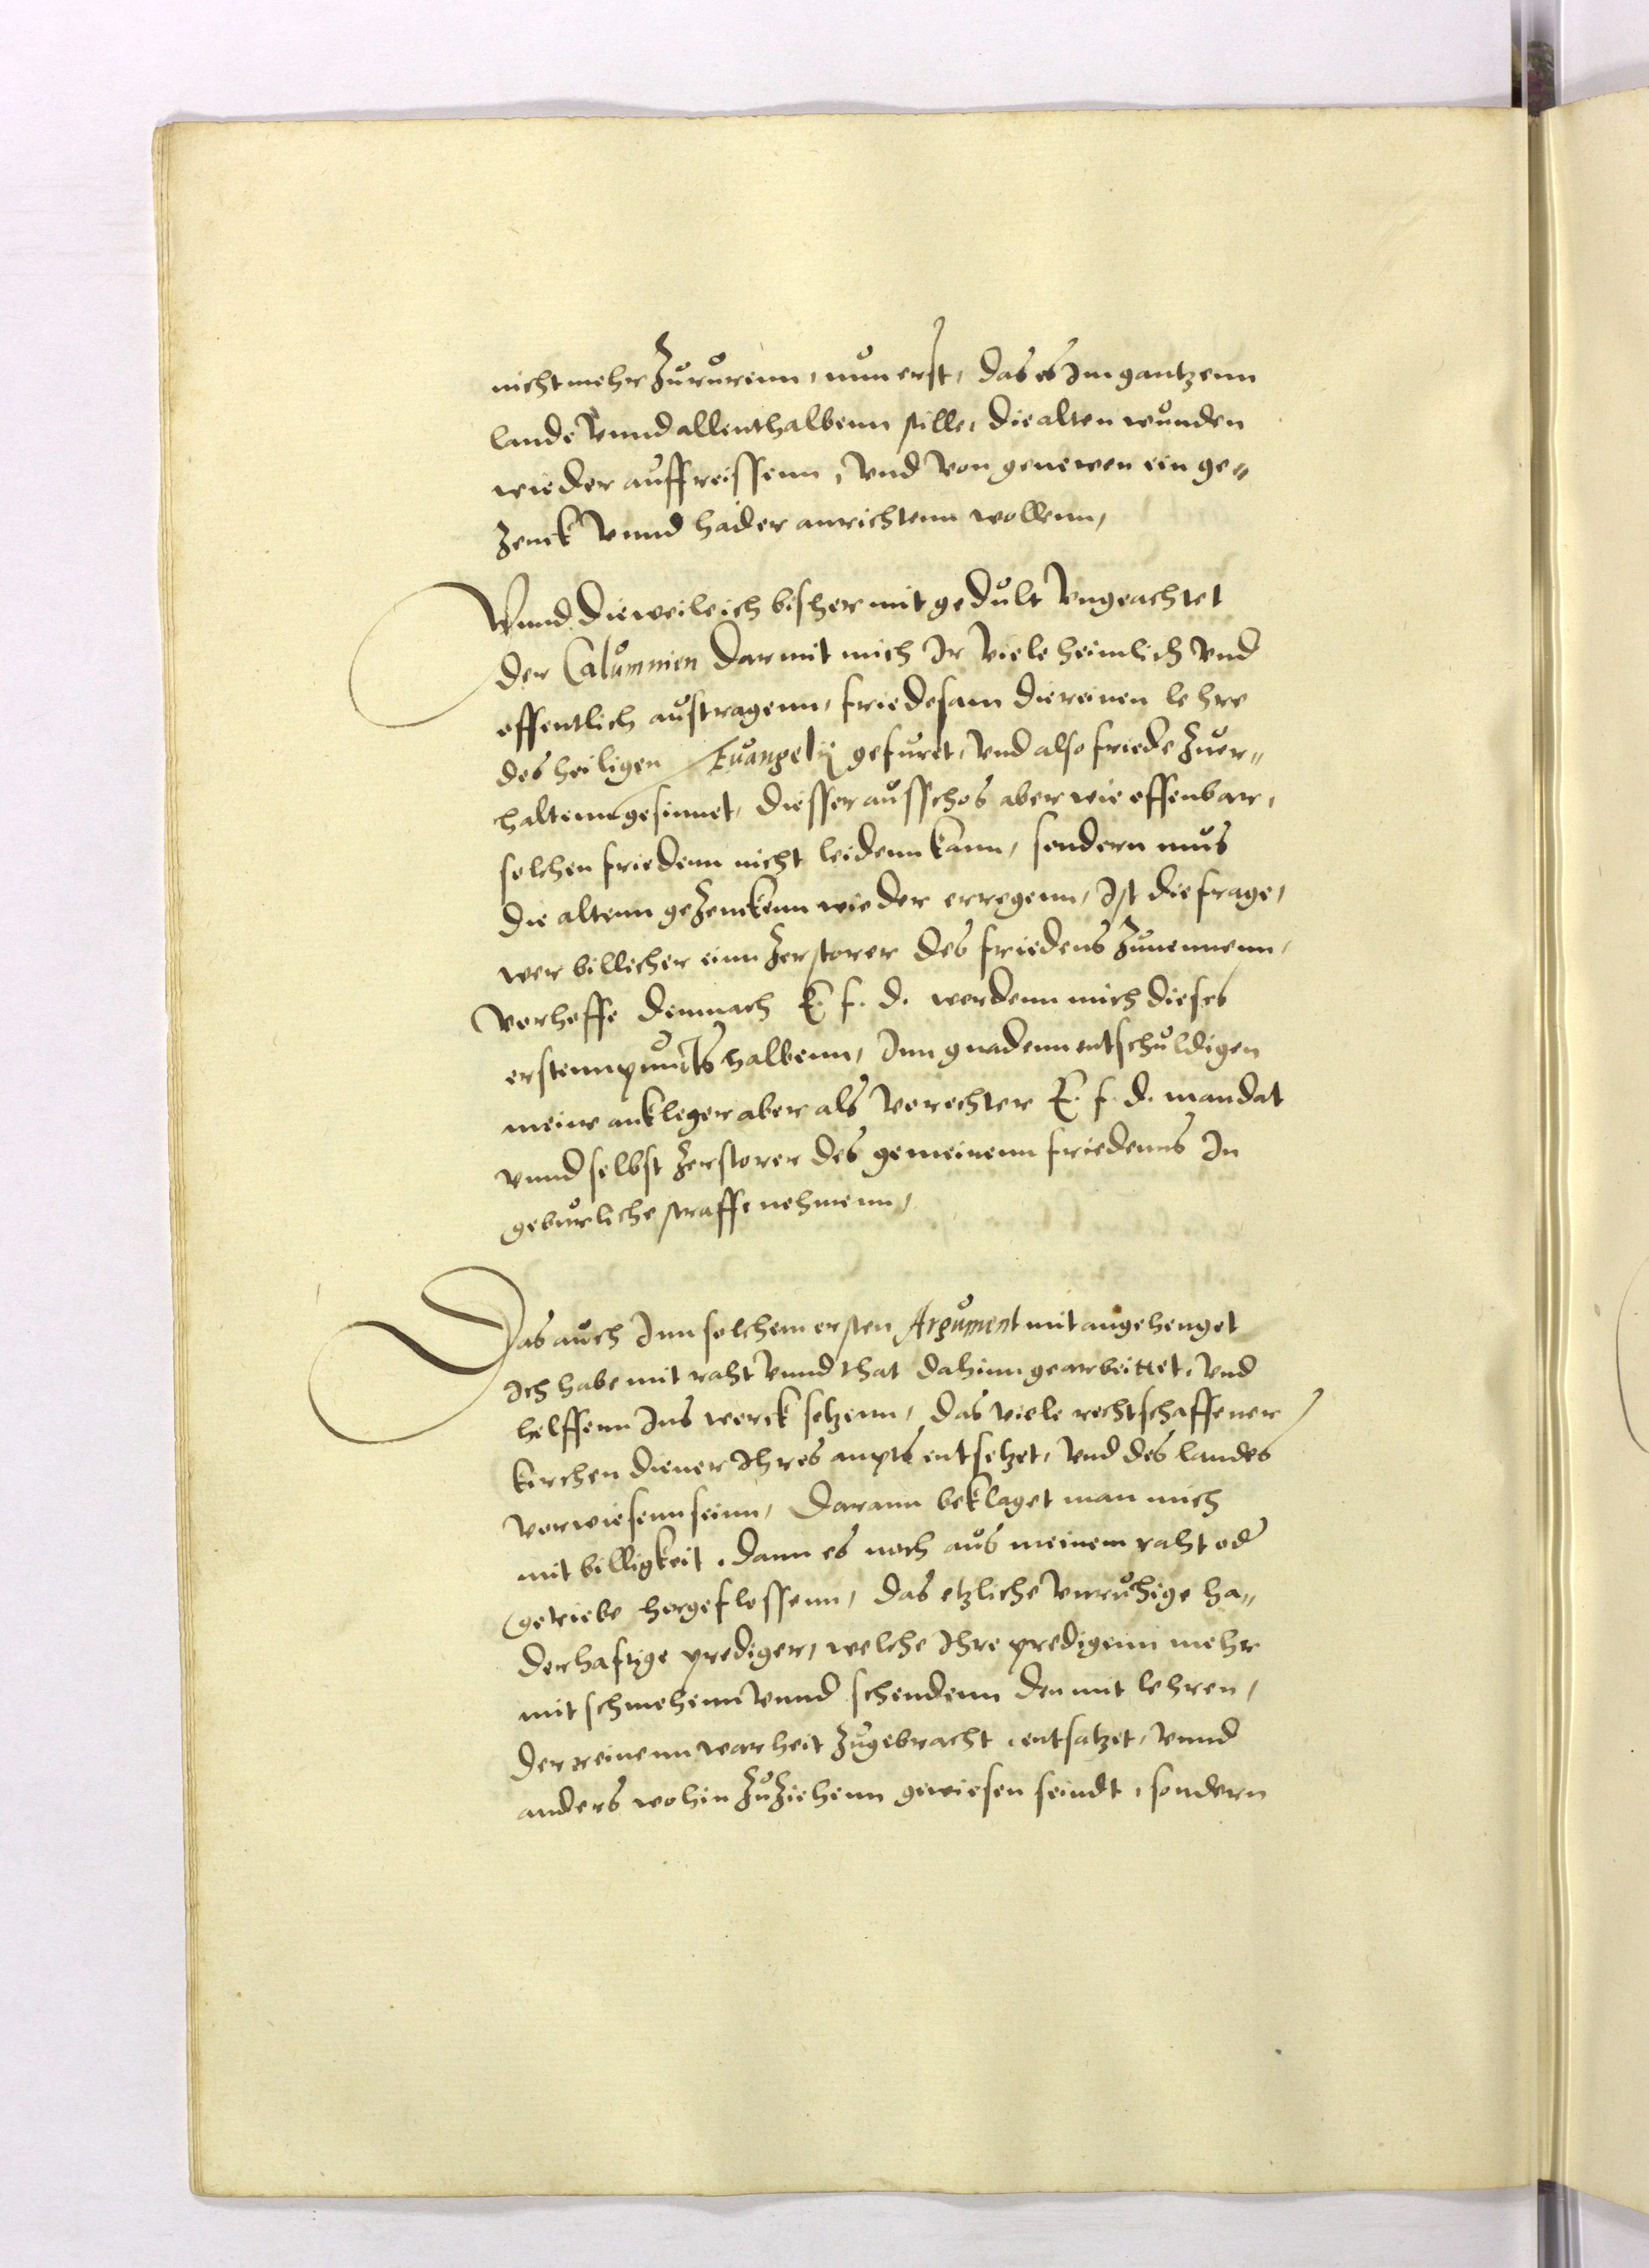 nicht mehr Zururenn, nun erst, das es Im gantzenn
lande vnnd allenthalbenn stille, die alten wunden
wieder auffreissenn, vnd von genewen ein ge„
Zenck vnnd hader anrichtenn wollenn,
Vnnd dieweile ich bisher mit gedult vngeachtet
der Calumnien darmit mich Ir viele heimlich vnd
offentlich austragenn, friedesam die reinen lehre
des heiligen Euangelij gefuret, vnd also friede Zuer„
haltenn gesinnet, diesser ausschos aber wie offenbar,
solchen friedenn nicht leidenn kann, sondern mus
die altenn geZenckenn wieder erregenn, Ist die frage,
wer billicher einn Zerstorer des friedens Zunennenn,
verhoffe demnach E. f. d. werdenn mich dieses
erstenn puncts halbenn, Inn gnadenn entschuldigen
meine ankleger aber als verechter E. f. d. mandat
vnnd selbst Zerstorer des gemeinenn friedenns In
geburliche straffe nehmenn,
Das auch Inn solchem ersten Argument mit angehenget
Ich habe mit raht vnnd that dahinn gearbeittet, vnd
helffenn Ins werck setzenn, das viele rechtschaffener
kirchen diener Ihres ampts entsetzet, vnd des landes
verwiesenn seinn, darann beklaget man mich
mit billigkeit, dann es noch aus meinem raht od
getriebe hergeflossenn, das etzliche vnruhige ha„
derhaftige prediger, welche Ihre predigenn mehr
mit schmehenn vnnd schendenn den mit lehren,
der reinenn warheit Zugebracht, entsatzet, vnnd
anders wohin ZuZiehenn gewiesen seindt, sondern